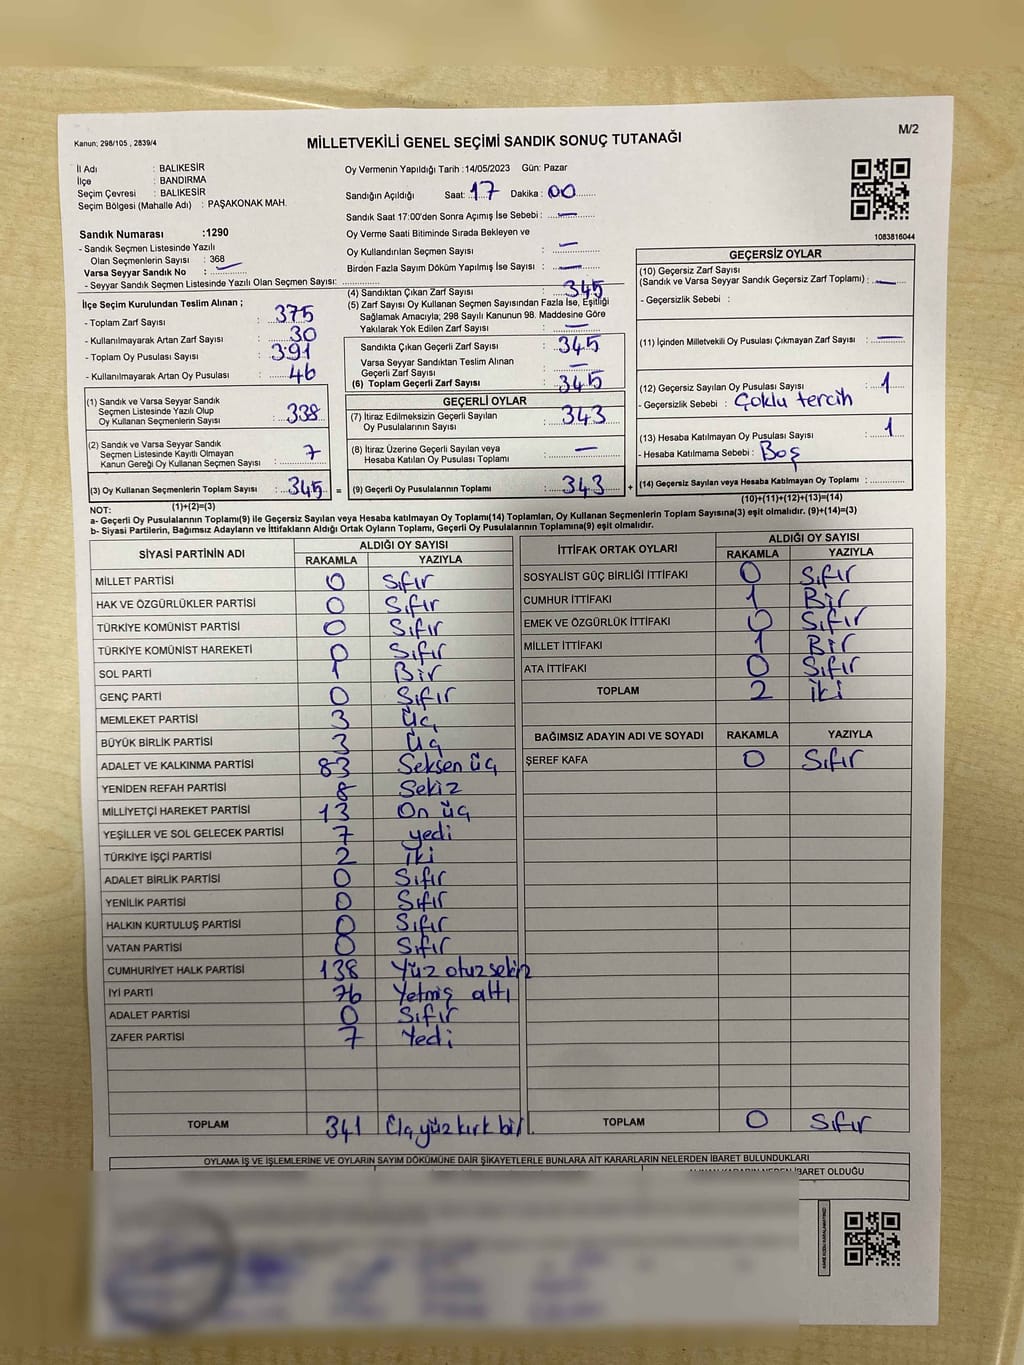 Kanun; 298/105 , 2839/4
MİLLETVEKİLİ GENEL SEÇİMİ SANDIK SONUÇ TUTANAĞI
M/2
İl Adı : BALIKESİR
İlçe : BANDIRMA
Seçim Çevresi : BALIKESİR
Seçim Bölgesi (Mahalle Adı) : PAŞAKONAK MAH.
Oy Vermenin Yapıldığı Tarih :14/05/2023 Gün: Pazar
Sandığın Açıldığı Saat: 17 Dakika : 00
Sandık Saat 17:00'den Sonra Açımış İse Sebebi : —
Oy Verme Saati Bitiminde Sırada Bekleyen ve
Oy Kullandırılan Seçmen Sayısı : —
Birden Fazla Sayım Döküm Yapılmış İse Sayısı : —
1083816044
Sandık Numarası :1290
- Sandık Seçmen Listesinde Yazılı
Olan Seçmenlerin Sayısı : 368
Varsa Seyyar Sandık No : —
- Seyyar Sandık Seçmen Listesinde Yazılı Olan Seçmen Sayısı:
İlçe Seçim Kurulundan Teslim Alınan ;
- Toplam Zarf Sayısı : 375
- Kullanılmayarak Artan Zarf Sayısı : 30
- Toplam Oy Pusulası Sayısı : 391
- Kullanılmayarak Artan Oy Pusulası : 46
(1) Sandık ve Varsa Seyyar Sandık
Seçmen Listesinde Yazılı Olup
Oy Kullanan Seçmenlerin Sayısı : 338
(2) Sandık ve Varsa Seyyar Sandık
Seçmen Listesinde Kayıtlı Olmayan
Kanun Gereği Oy Kullanan Seçmen Sayısı : 7
(3) Oy Kullanan Seçmenlerin Toplam Sayısı : 345 =
(1)+(2)=(3)
(4) Sandıktan Çıkan Zarf Sayısı : 345
(5) Zarf Sayısı Oy Kullanan Seçmen Sayısından Fazla İse, Eşitliği
Sağlamak Amacıyla; 298 Sayılı Kanunun 98. Maddesine Göre
Yakılarak Yok Edilen Zarf Sayısı : —
Sandıkta Çıkan Geçerli Zarf Sayısı : 345
Varsa Seyyar Sandıktan Teslim Alınan
Geçerli Zarf Sayısı : —
(6) Toplam Geçerli Zarf Sayısı : 345
GEÇERLİ OYLAR
(7) İtiraz Edilmeksizin Geçerli Sayılan
Oy Pusulalarının Sayısı : 343
(8) İtiraz Üzerine Geçerli Sayılan veya
Hesaba Katılan Oy Pusulası Toplamı : —
(9) Geçerli Oy Pusulalarının Toplamı : 343 +
GEÇERSİZ OYLAR
(10) Geçersiz Zarf Sayısı
(Sandık ve Varsa Seyyar Sandık Geçersiz Zarf Toplamı) : —
- Geçersizlik Sebebi :
(11) İçinden Milletvekili Oy Pusulası Çıkmayan Zarf Sayısı : —
(12) Geçersiz Sayılan Oy Pusulası Sayısı : 1
- Geçersizlik Sebebi : Çoklu tercih
(13) Hesaba Katılmayan Oy Pusulası Sayısı : 1
- Hesaba Katılmama Sebebi : Boş
(14) Geçersiz Sayılan veya Hesaba Katılmayan Oy Toplamı :
(10)+(11)+(12)+(13)=(14)
NOT:
a- Geçerli Oy Pusulalarının Toplamı(9) ile Geçersiz Sayılan veya Hesaba katılmayan Oy Toplamı(14) Toplamları, Oy Kullanan Seçmenlerin Toplam Sayısına(3) eşit olmalıdır. (9)+(14)=(3)
b- Siyasi Partilerin, Bağımsız Adayların ve İttifakların Aldığı Ortak Oyların Toplamı, Geçerli Oy Pusulalarının Toplamına(9) eşit olmalıdır.
SİYASİ PARTİNİN ADI ALDIĞI OY SAYISI
RAKAMLA YAZIYLA
MİLLET PARTİSİ 0 Sıfır
HAK VE ÖZGÜRLÜKLER PARTİSİ 0 Sıfır
TÜRKİYE KOMÜNİST PARTİSİ 0 Sıfır
TÜRKİYE KOMÜNİST HAREKETİ 0 Sıfır
SOL PARTİ 1 Bir
GENÇ PARTİ 0 Sıfır
MEMLEKET PARTİSİ 3 Üç
BÜYÜK BİRLİK PARTİSİ 3 Üç
ADALET VE KALKINMA PARTİSİ 83 Seksen üç
YENİDEN REFAH PARTİSİ 8 Sekiz
MİLLİYETÇİ HAREKET PARTİSİ 13 On üç
YEŞİLLER VE SOL GELECEK PARTİSİ 7 yedi
TÜRKİYE İŞÇİ PARTİSİ 2 İki
ADALET BİRLİK PARTİSİ 0 Sıfır
YENİLİK PARTİSİ 0 Sıfır
HALKIN KURTULUŞ PARTİSİ 0 Sıfır
VATAN PARTİSİ 0 Sıfır
CUMHURİYET HALK PARTİSİ 138 Yüz otuz sekiz
İYİ PARTİ 76 Yetmiş altı
ADALET PARTİSİ 0 Sıfır
ZAFER PARTİSİ 7 Yedi
TOPLAM 341 Üç yüz kırk bir
İTTİFAK ORTAK OYLARI ALDIĞI OY SAYISI
RAKAMLA YAZIYLA
SOSYALİST GÜÇ BİRLİĞİ İTTİFAKI 0 Sıfır
CUMHUR İTTİFAKI 1 Bir
EMEK VE ÖZGÜRLÜK İTTİFAKI 0 Sıfır
MİLLET İTTİFAKI 1 Bir
ATA İTTİFAKI 0 Sıfır
TOPLAM 2 İki
BAĞIMSIZ ADAYIN ADI VE SOYADI RAKAMLA YAZIYLA
ŞEREF KAFA 0 Sıfır
TOPLAM 0 Sıfır
OYLAMA İŞ VE İŞLEMLERİNE VE OYLARIN SAYIM DÖKÜMÜNE DAİR ŞİKAYETLERLE BUNLARA AİT KARARLARIN NELERDEN İBARET BULUNDUKLARI
ALINAN KARARIN NEDEN İBARET OLDUĞU